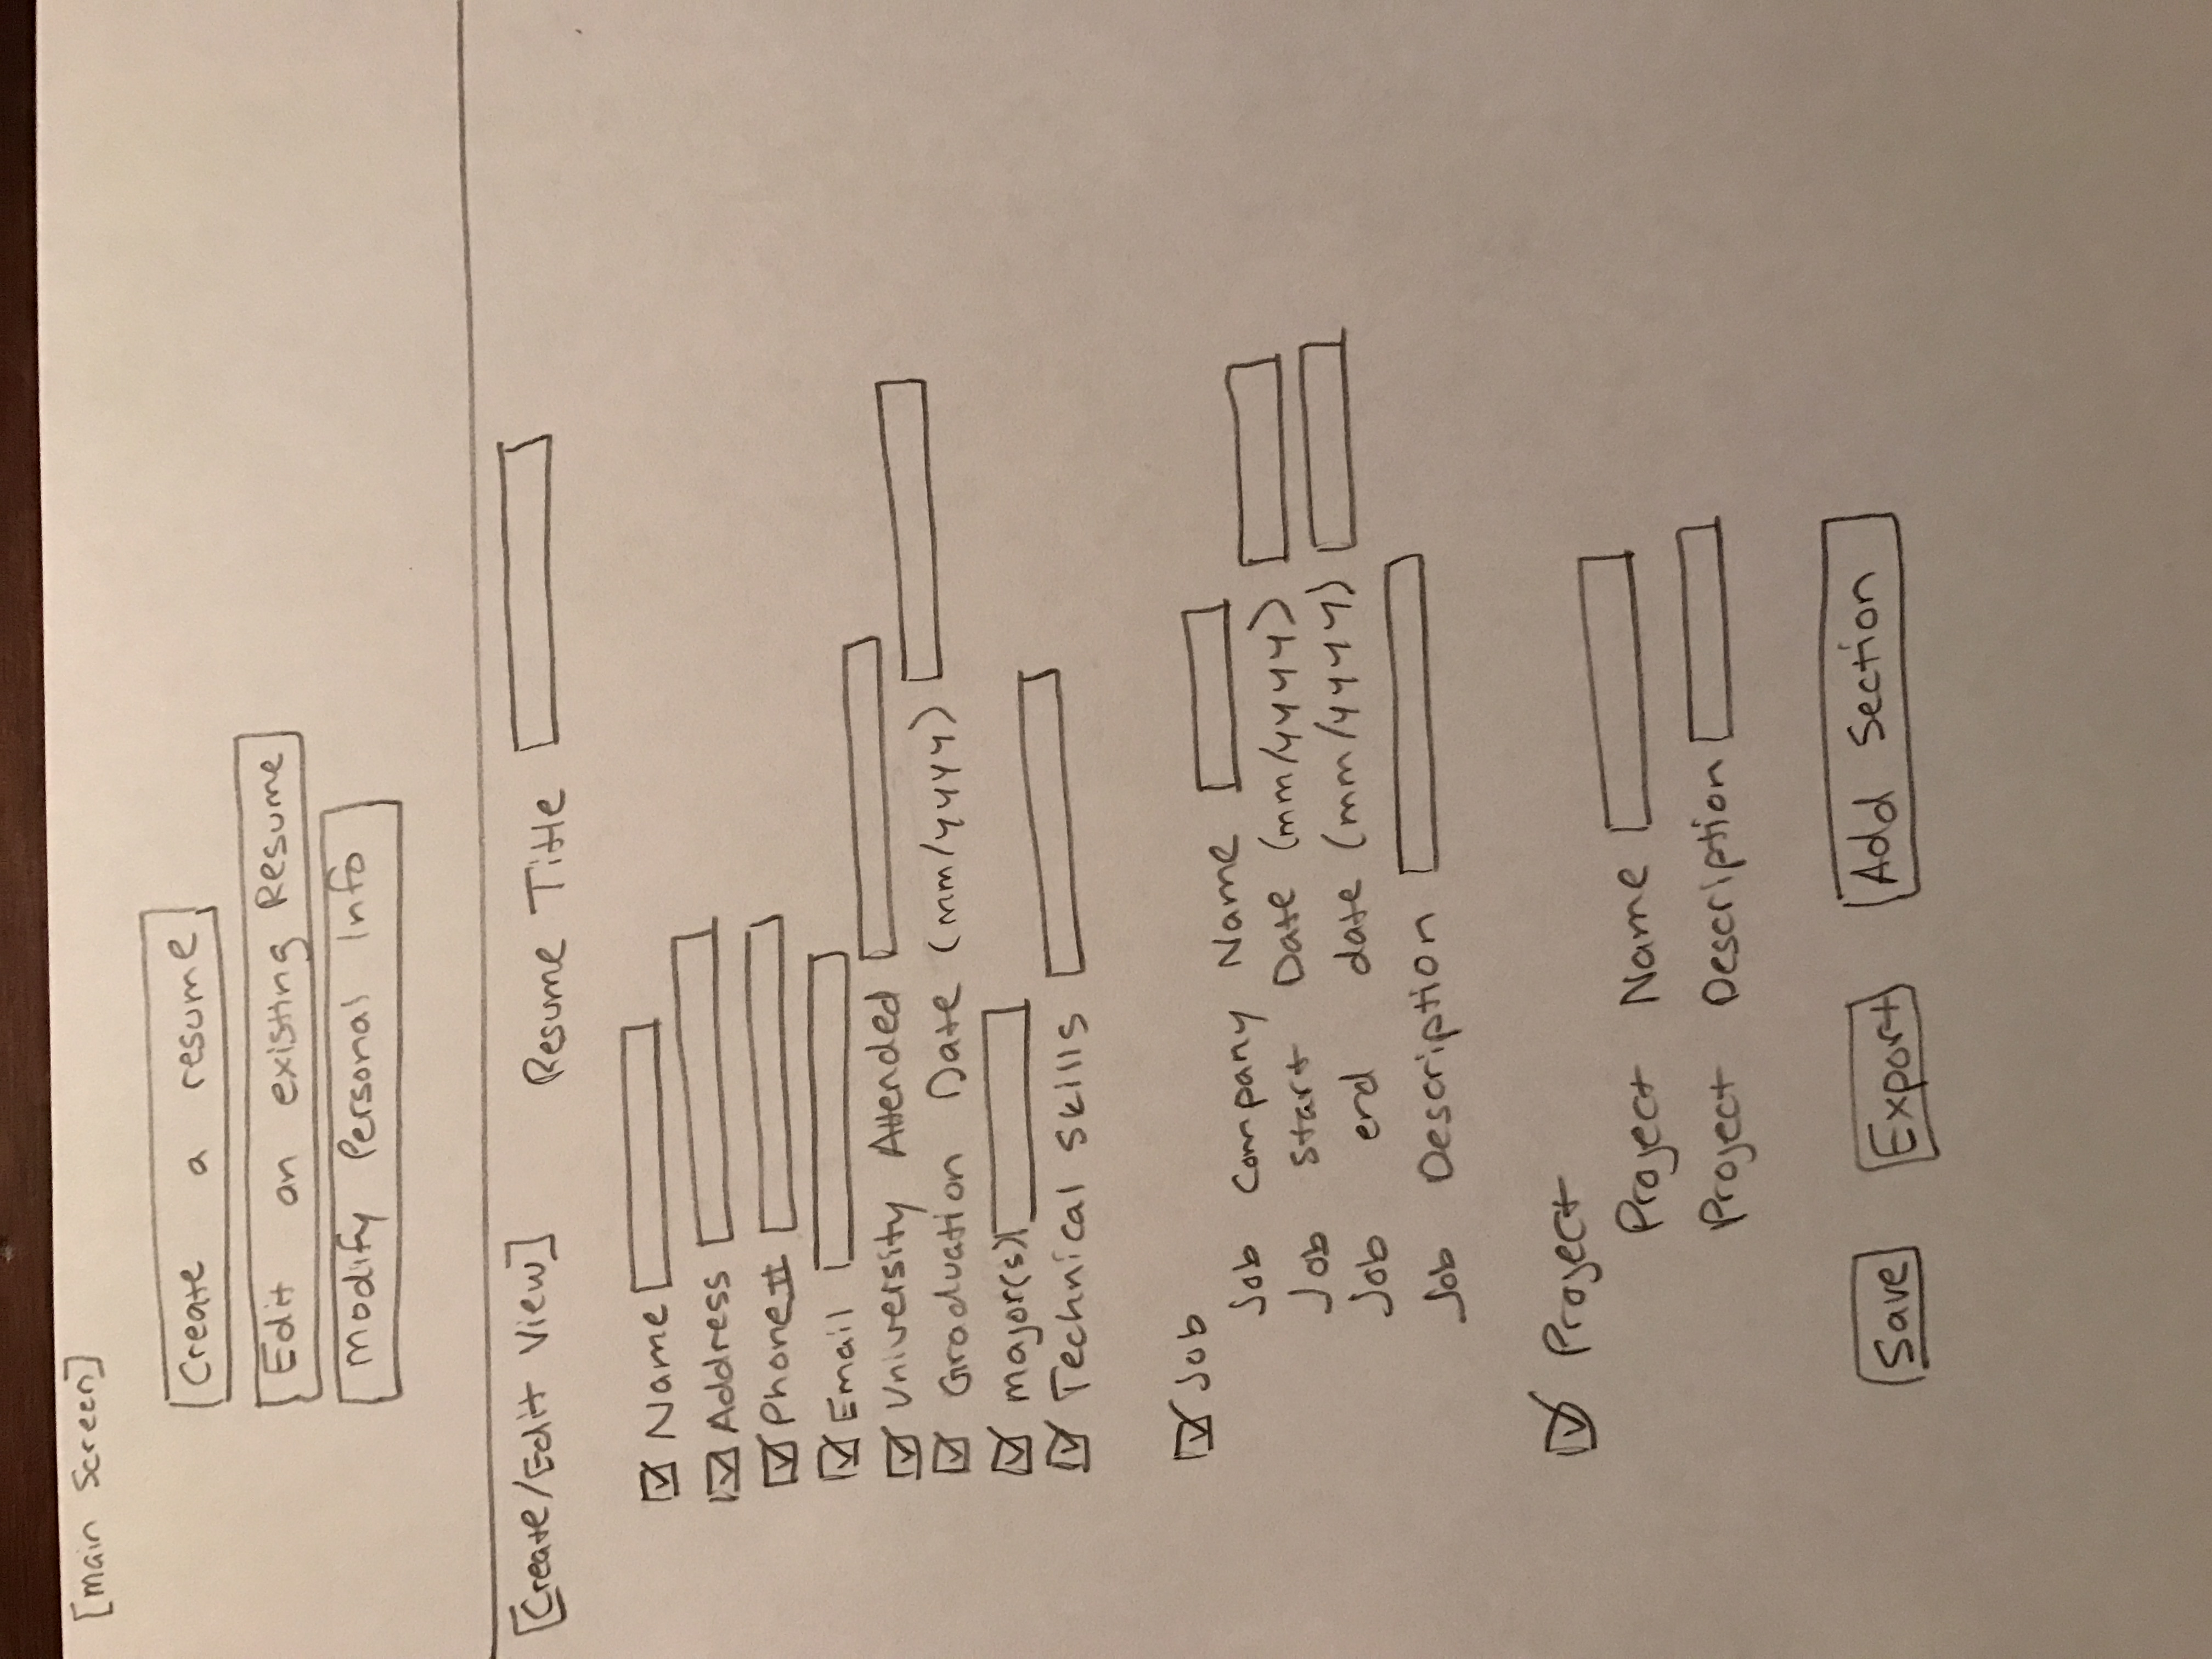 [main Screen]
Create a resume
Edit an existing Resume
Modify Personal Info
[Create/Edit View] Resume Title
Name
Address
Phone#
Email
University Attended
Graduation Date (mm/yyyy)
major(s)
Technical Skills
Job
Job Company Name
Job Start Date (mm/yyyy)
Job end date (mm/yyyy)
Job Description
Project
Project Name
Project Description
Save Export Add Section